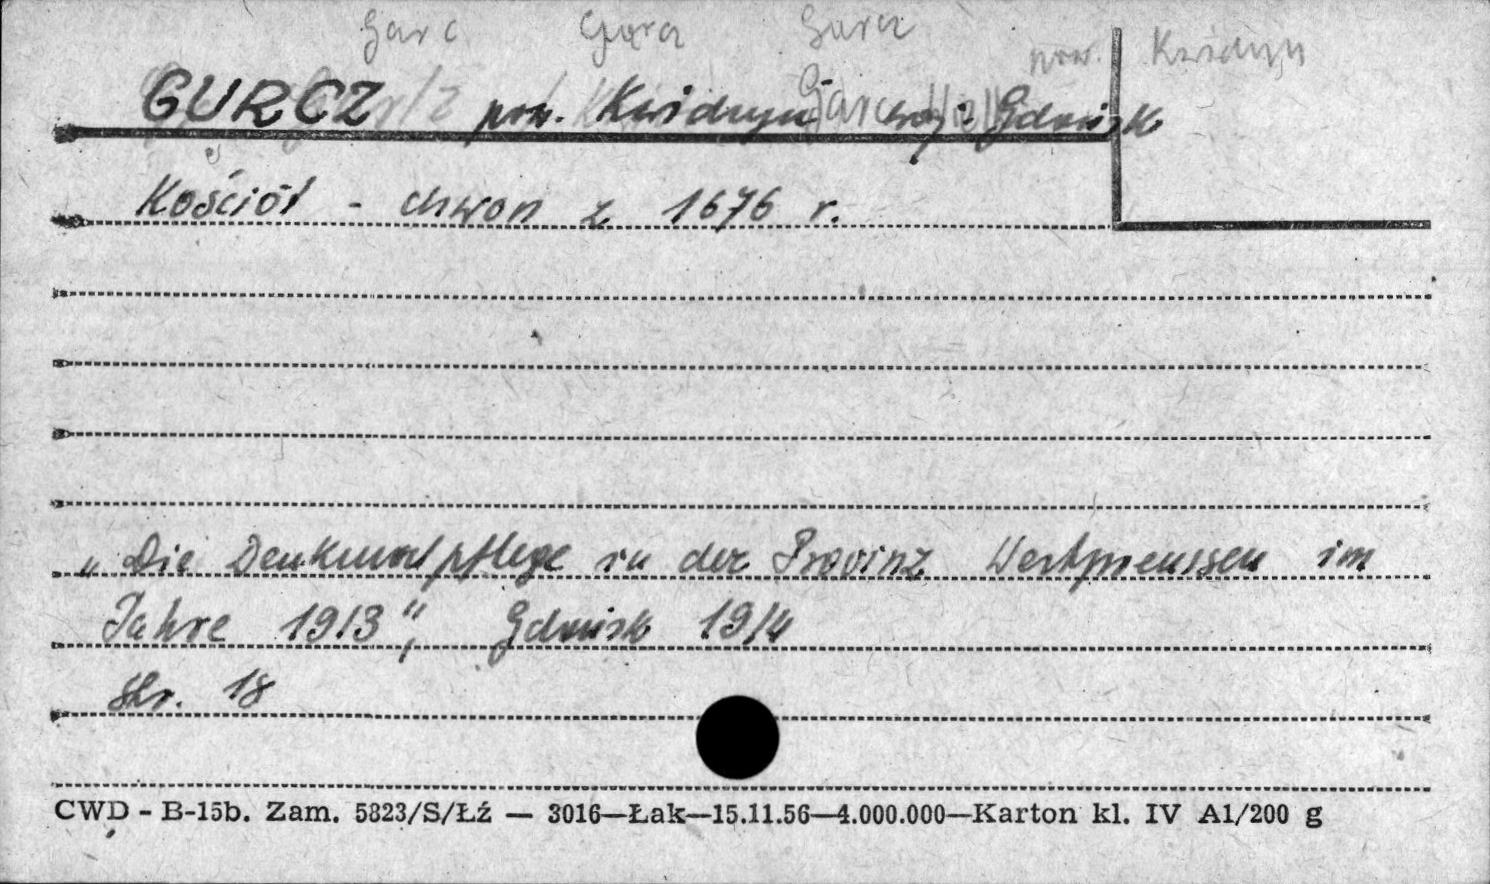 Garc Gąrcz Garcz pow. Kwidzyn
GURCZ pow. Kwidzyn woj. Gdańsk
Kościół - chwon z 1676 r.
„Die Denkmalpflege in der Provinz Westpreussen im
Jahre 1913", Gdańsk 1914
Str. 18
CWD - B-15b. Zam. 5823/S/Łź — 3016—Łak—15.11.56—4.000.000—Karton kl. IV A1/200 g